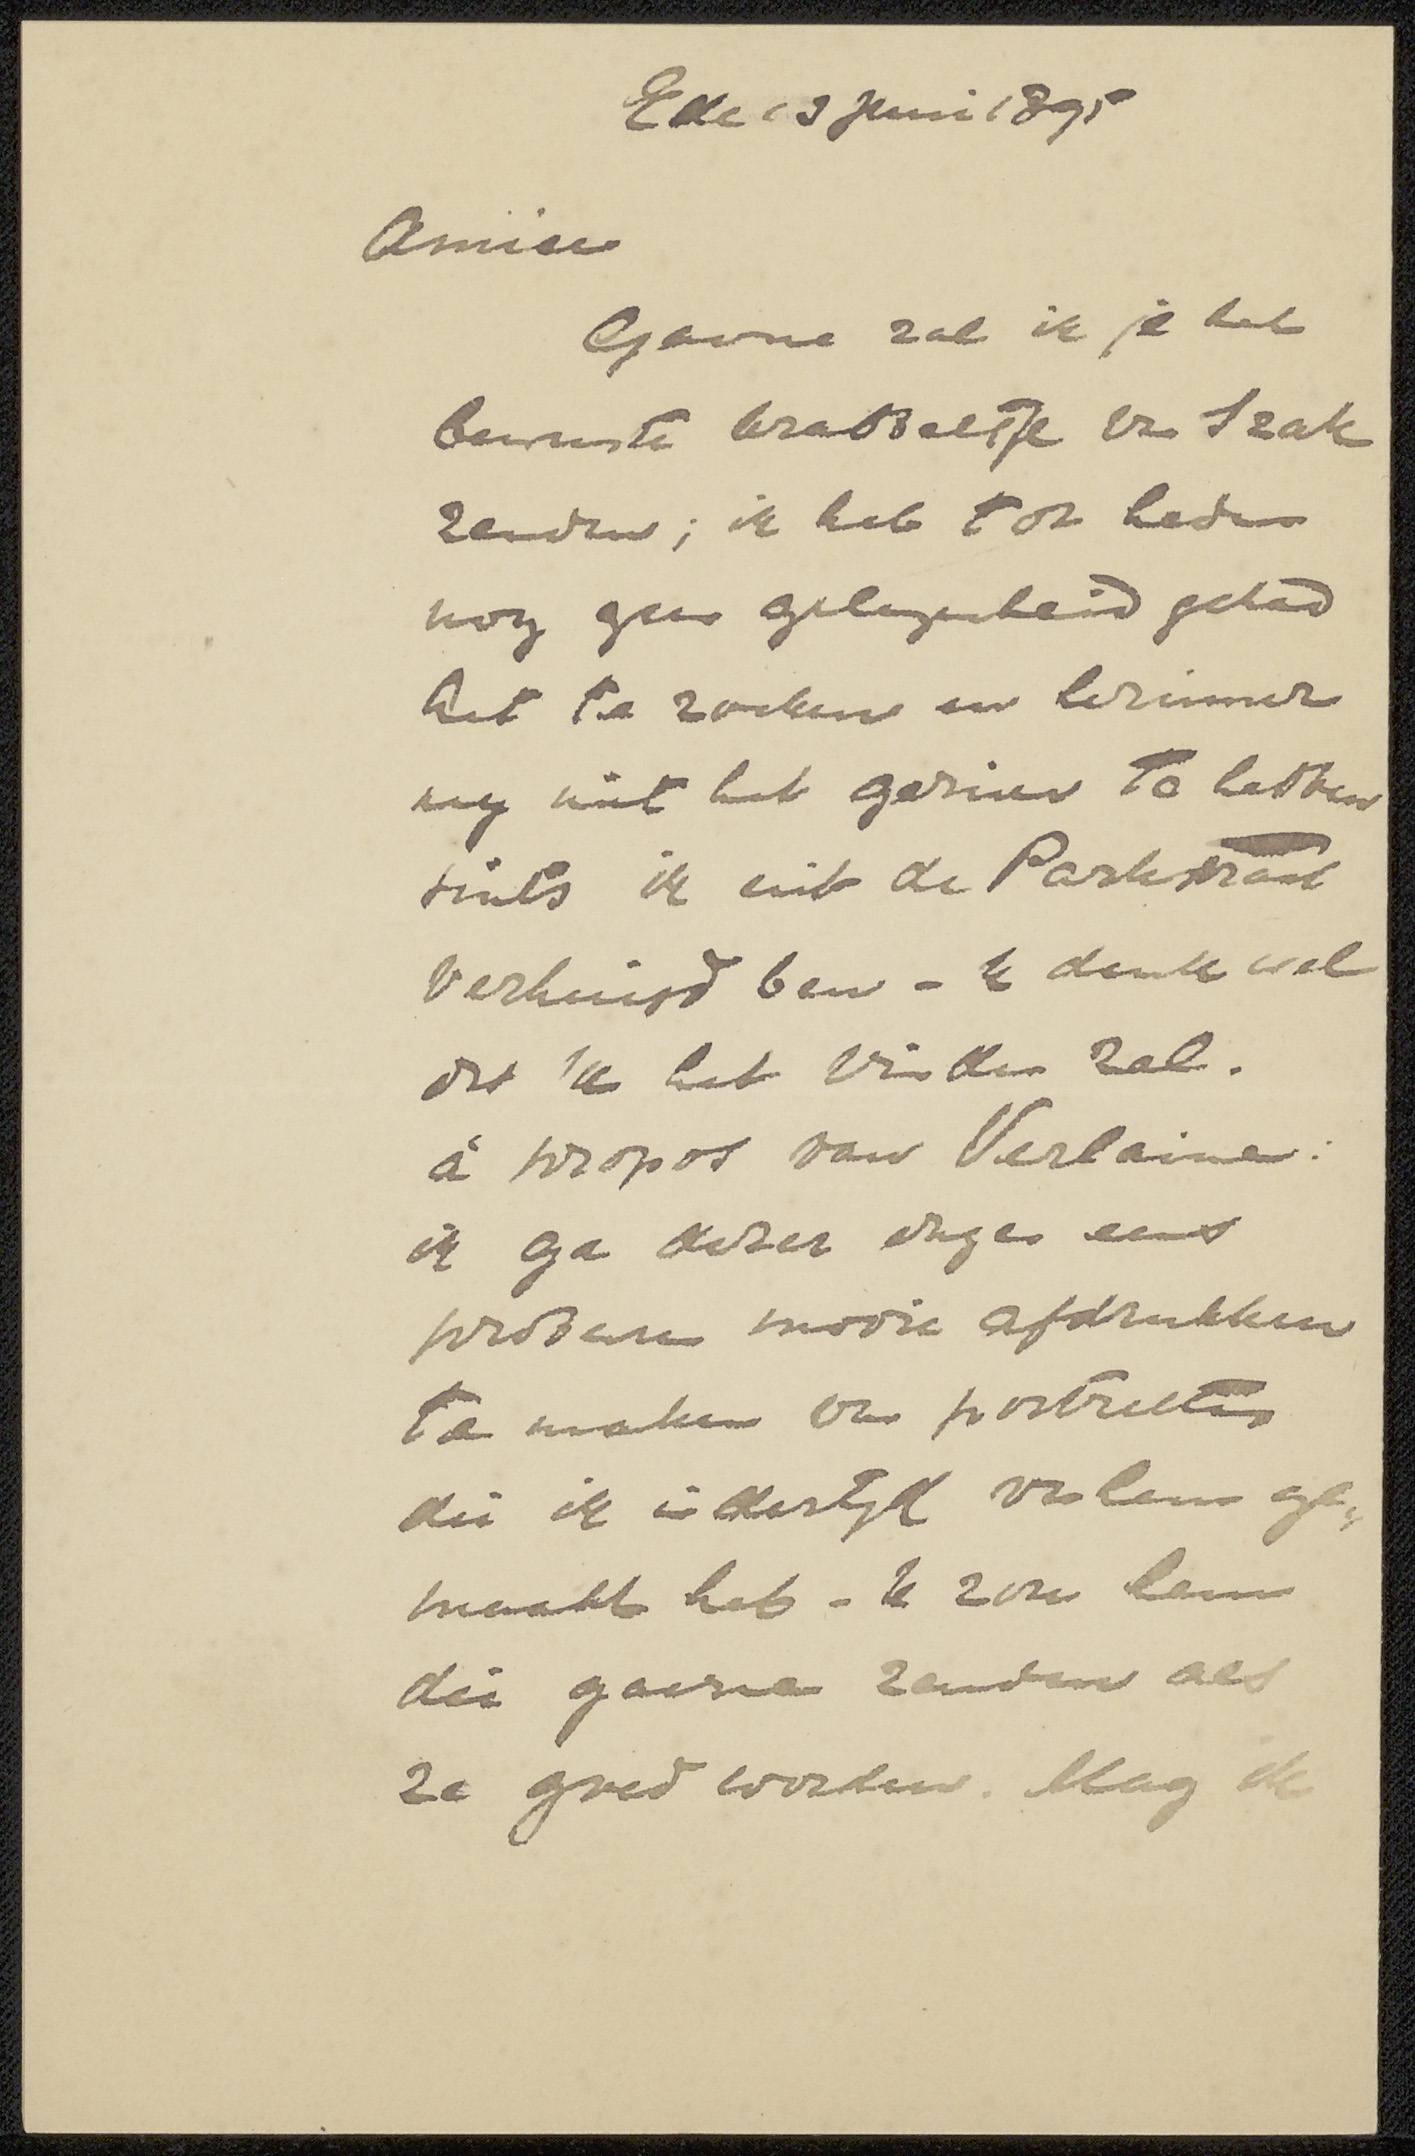 Ede 13 Juni 1895
Amice
Gaarne zal ik je het
bewuste krabbeltje van Izak
zenden; ik heb tot heden
nog geen gelegenheid gehad
het te zoeken en herinner
mij niet het gezien te hebben
sints ik uit de Parkstraat
verhuisd ben - 'k denk wel
dat 'k het vinden zal.
à propos van Verlaine:
ik ga dezer dagen eens
probeeren mooie afdrukken
te maken van portretten
die ik indertijd van hem ge„
maakt heb - 'k zou hem
die gaarne zenden als
ze goed worden. Mag ik